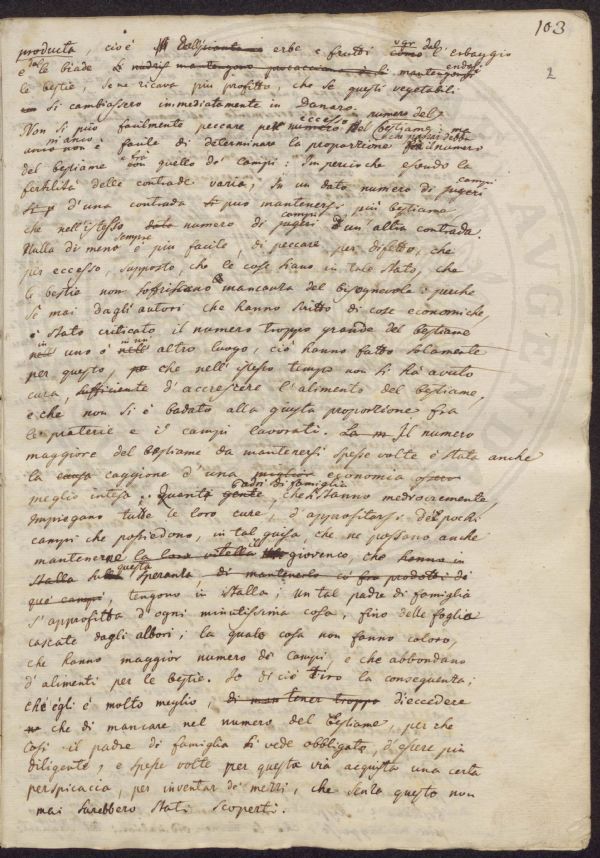 103
2
producta, cioè dall'erbe e frutti come vgr dal' erbaggio
e dalle biade si mantengono procacciandosi mantengonsi endosi
le bestie, se ne ricava più profitto, che se questi vegetabili
si cambiassero immediatamente in Danaro.
Non si può facilmente peccare nell'eccesso numero del bestiame, ma
manco non è facile di determinare la proporzione del numero
del bestiame e fra quello de' campi: Imperciochè essendo la
fertilità delle contrade varia, In un dato numero di jugeri campi
d'una contrada si può mantenersi più bestiame,
che nell'istesso dato numero di jugeri campi d'un altra contrada.
Nulla di meno sempre è più facile, di peccare per difetto, che
per eccesso, supposto, che le cose siano in tale stato, che
le bestie non soffriscano mancanza del bisognevole: perchè
se mai dagli autori che hanno scritto di cose economiche,
è stato criticato il numero troppo grande del bestiame
in uno è in un altro luogo, ciò hanno fatto solamente
per questo, che nell'istesso tempo non si ha avuto
cura, sufficiente d'accrescere l'alimento del bestiame,
e che non si è badato alla giusta proporzione fra
le praterie e i campi lavorati. La m Il numero
maggiore del bestiame da mantenersi spesse volte è stata anche
la causa caggione d'una miglior economia
meglio intesa. Quanta gente padri di famiglia, che stanno mediocremente
impiegano tutte le loro cure, d'approfittarsi de' pochi
campi che possiedono, in tal guisa, che ne possano anche
mantenerne la loro vitella il giovenco, che hanno in
stalla questa speranza, di mantenerlo co' fra prodotti di
que' campi, tengono in istalla; un tal padre di famiglia
s'approfitta d'ogni minutissima cosa, fino delle foglie
cascate dagli albori; la quale cosa non fanno coloro,
che hanno maggior numero di campi, e che abbondano
d'alimenti per le bestie. Se di ciò tiro la conseguenza;
ch'egli è molto meglio, di mantener troppo d'eccedere
che di mancare nel numero del bestiame, perchè
così il padre di famiglia si vede obbligato, d'essere più
diligente, e spesse volte per questa via acquista una certa
perspicacia, per inventar de' mezzi, che senza questo non
mai sarebbero stati scoperti.